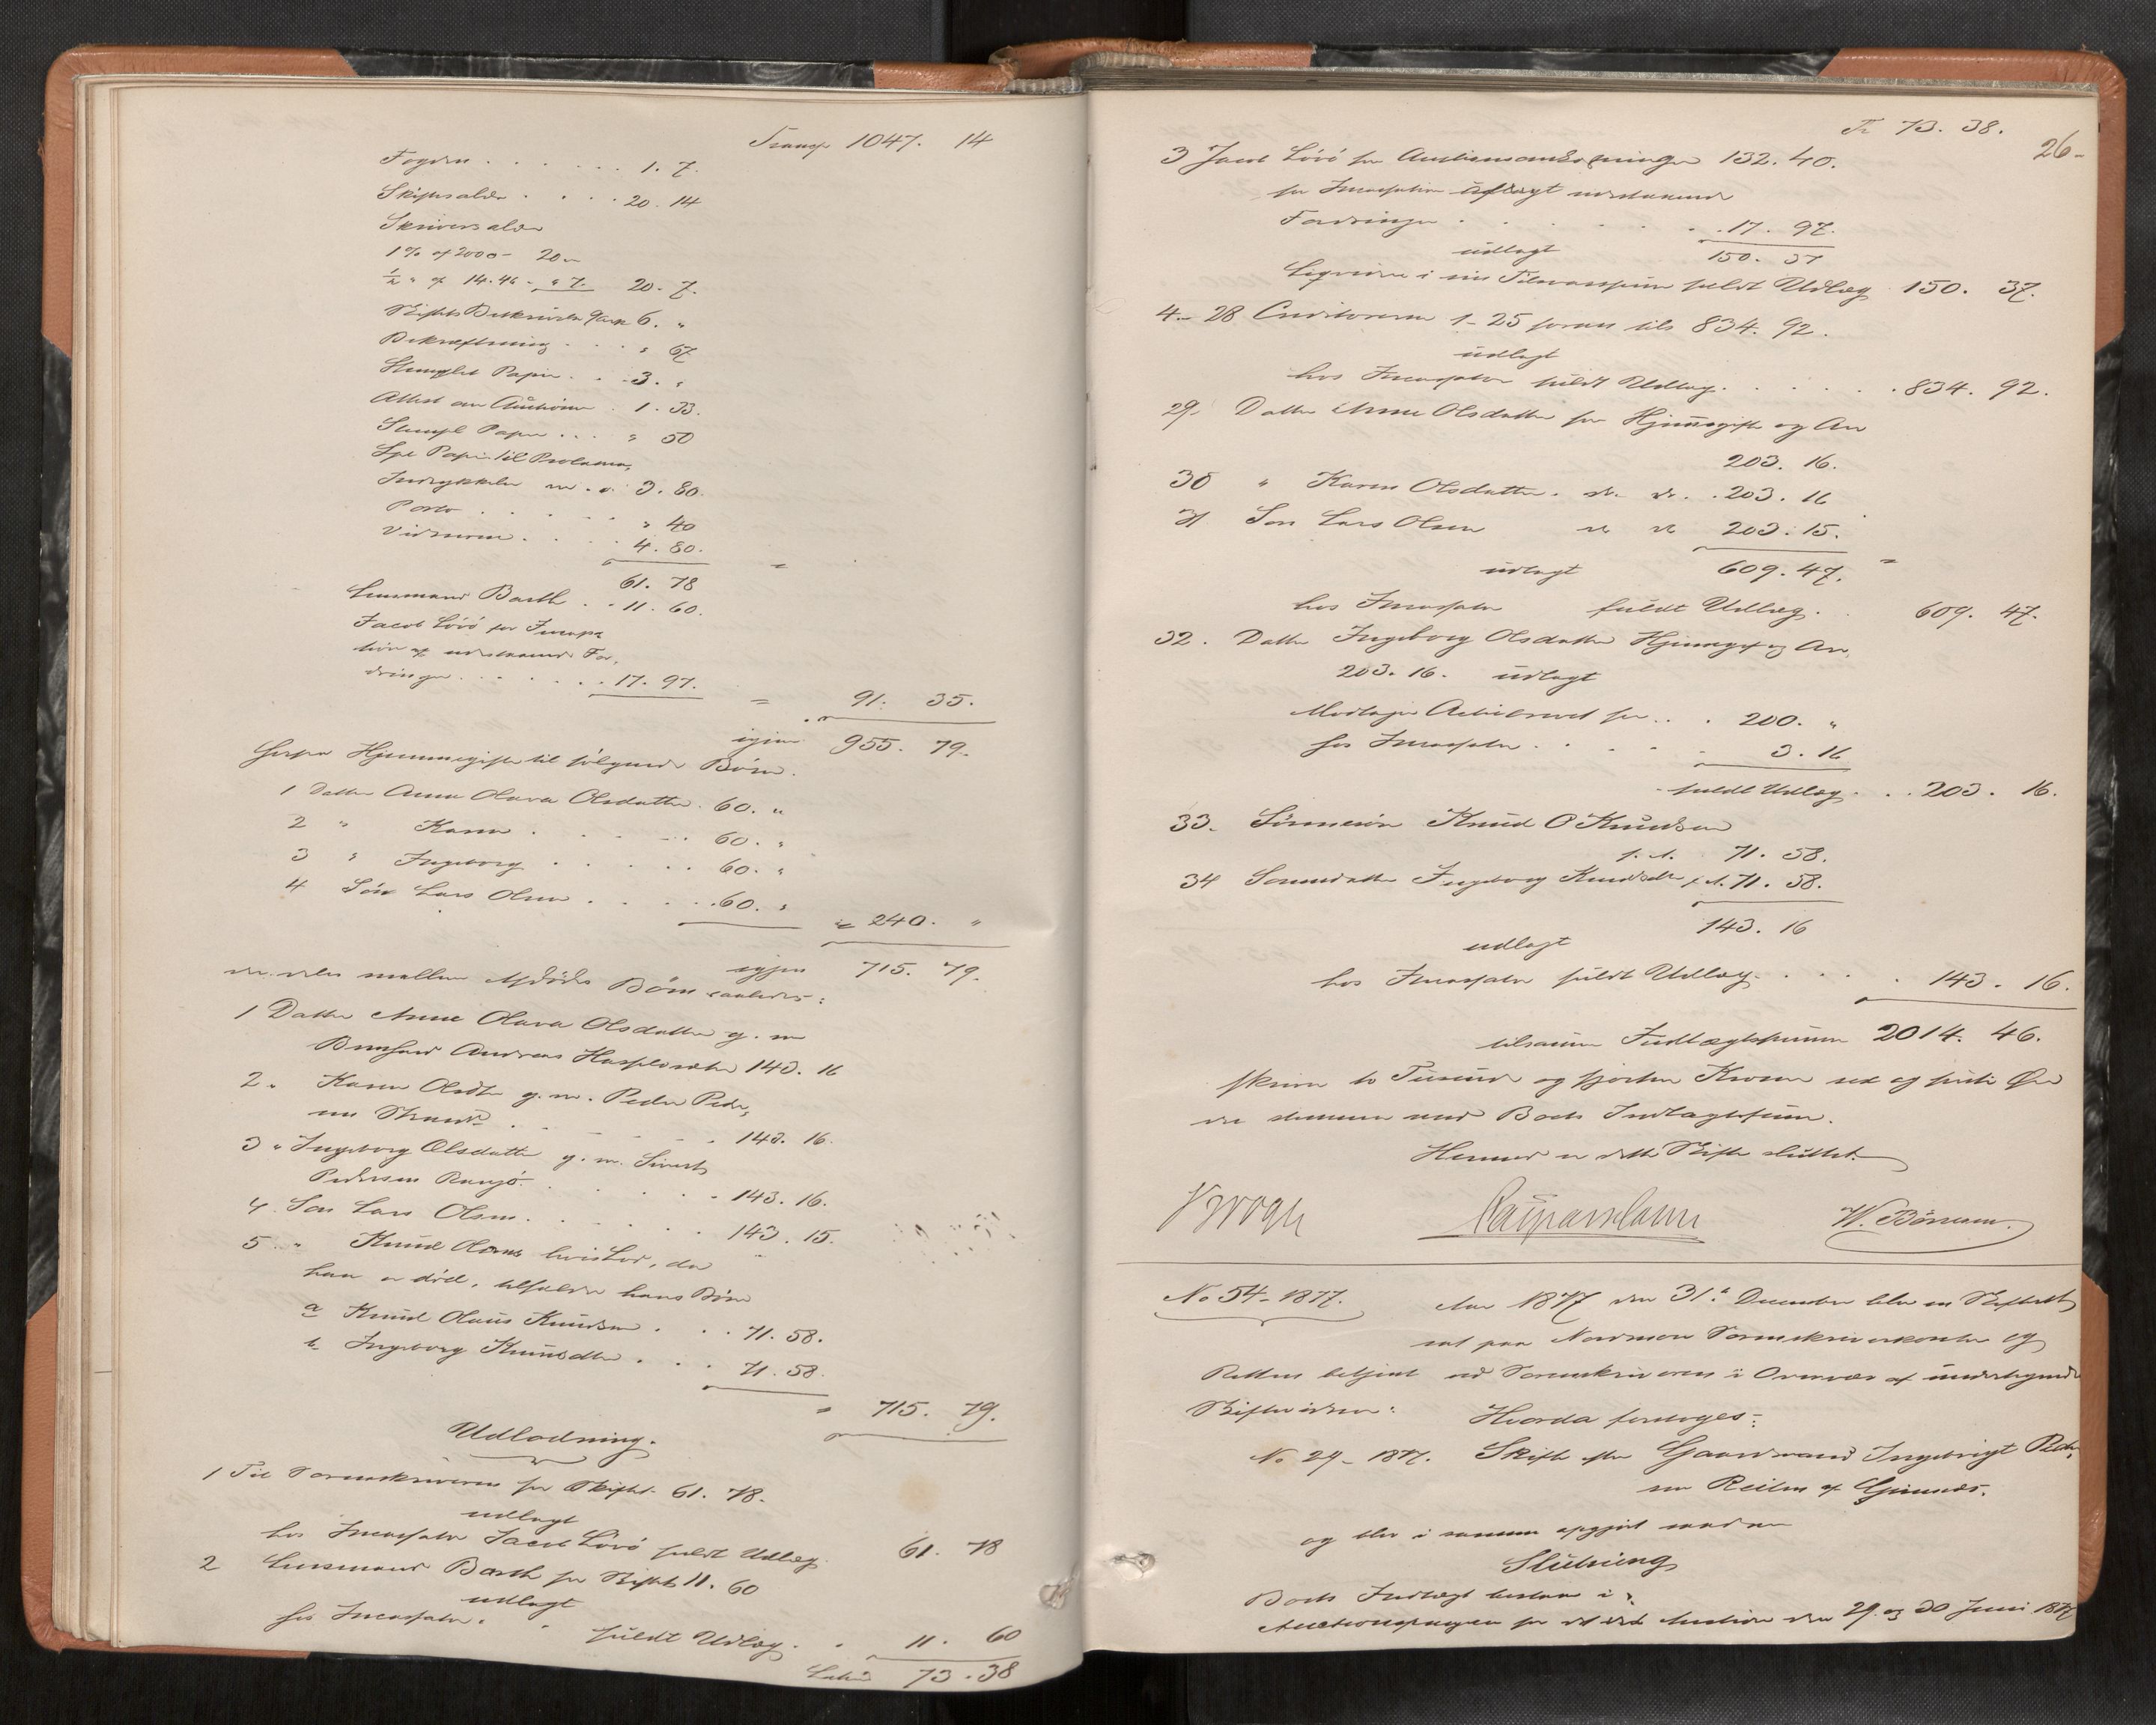 Transp 1047. 14
Fogden . . . . . . 1. 7.
Skiftesalær . . . . 20. 14
Skriversalær
1 % af 2000 - 20 "
½ " af 14.46 - " 7. 20. 7.
Skiftets Beskrivelse 9 Ark 6. "
Bekræftning . . . " 67
Stemplet Papir . . 3. "
Attest om Auktionen . 1. 33.
Stempl Papir . . . " 50
Spl Papir til Proclama,
Indrykkelse m. v. 3. 80.
Porto . . . . . " 40
Vidnerne . . . . 4. 80.
61. 78
Lensmand Barth . . 11. 60.
Jacob Lövö for Incassa
tion af udestaaende For,
dringer . . . . . . 17. 97.
= 91. 35.
igjen 955. 79.
herfra Hjemmegifte til fölgende Börn.
1 Datter Anne Olava Olsdatter. 60. "
2 " Karen . . . . . 60. "
3 " Ingeborg . . . . . 60. "
4 Sön Lars Olsen . . . . . 60. "
= 240. "
igjen 715. 79.
der deles mellem Afdödes Börn saaledes:
1 Datter Anne Olava Olsdatter g. m
Bernhard Andreas 143. 16
2 " Karen Olsdtr g. m. Peder Peder,
sen Strand . . . . . 143. 16.
3 " Ingeborg Olsdatter g. m. Sivert
Pedersen . . . . . 143. 16.
4 Sön Lars Olsen . . . . . 143. 15.
5 " Knud Olsens hvis Lod, da
han er död, tilfalder hans Börn
a Knud Olaus Knudsen . . . 71. 58.
b Ingeborg Knudsdtr . . . 71. 58.
= 715. 79.
Udlodning.
1 Til Sorenskriveren for Skiftet 61. 78.
udlagt
hos Incassator Jacob Lövö fuldt Udlæg. 61. 78
2 Lensmand Barth for Skiftet 11. 60
udlagt
hos Incassator . . fuldt Udlæg . . 11. 60
Latus 73. 38
Tr 73. 38.
26-
3 Jacob Lövö for Auktionsomkostninger 132. 40.
for Incassation af udlagt udestaaende
Fordringer . . . . . . . 17. 97.
udlagt 150. 37
Ligeledes i sin Tilsvarssum fuldt Udlæg 150. 37.
4-28 Creditorerne 1-25 foran tils 834. 92.
udlagt
hos Incassator fuldt Udlæg. . . . . . 834. 92.
29. Datter Anne Olsdatter for Hjemmegifte og Arv
203. 16.
30 " Karen Olsdatter. do. do. . 203. 16
31 Sön Lars Olsen do do 203. 15.
udlagt 609. 47.
hos Incassator fuldt Udlæg . . 609. 47.
32. Datter Ingeborg Olsdatter Hjemmegift og Arv,
203. 16. udlagt
Modtager for . . 200. "
hos Incassator . . . . . 3. 16
fuldt Udlæg . . 203. 16.
33. Sönnesön Knud O Knudsen
f. A. 71. 58.
34 Sönnedatter Ingeborg Knudsdtr f. A. 71. 58.
143. 16
udlagt
hos Incassator fuldt Udlæg. . . . . 143. 16.
tilsammen Indtægtssummen 2014. 46.
skriver to Tusinde og fjorten Kroner sex og firti Öre
der stemmer med Boets Indtægtssum.
Hermed er dette Skifte sluttet.
W. Börresen.
No 54-1877.
Aar 1877 den 31te December blev en Skifteret
sat paa Nordmöre Sorenskriverkontor og
Retten betjent ved Sorenskriveren i Overvær af undertegnede
Skiftevidner: Hvorda foretoges:
No 29-1877. Skifte efter Gaardmand Ingebrigt Peder,
sen Reiten af Gjimnæs.
og blev i samme opgjort saadan
Slutning
Boets Indtægt bestaar i:
Auctionspengene for det ved Auction den 29. og 30 Juni 1877